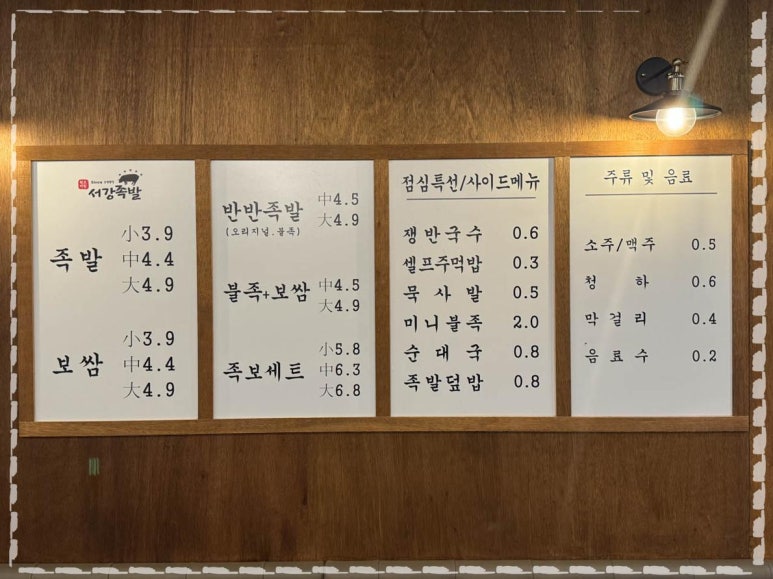 Since 1991
서강족발
小3.9
족발 中4.4
大4.9
小3.9
보쌈 中4.4
大4.9
반반족발 中4.5
(오리지널.불족) 大4.9
불족+보쌈 中4.5
大4.9
小5.8
족보세트 中6.3
大6.8
점심특선/사이드메뉴
쟁반국수 0.6
셀프주먹밥 0.3
묵사발 0.5
미니불족 2.0
순대국 0.8
족발덮밥 0.8
주류 및 음료
소주/맥주 0.5
청하 0.6
막걸리 0.4
음료수 0.2